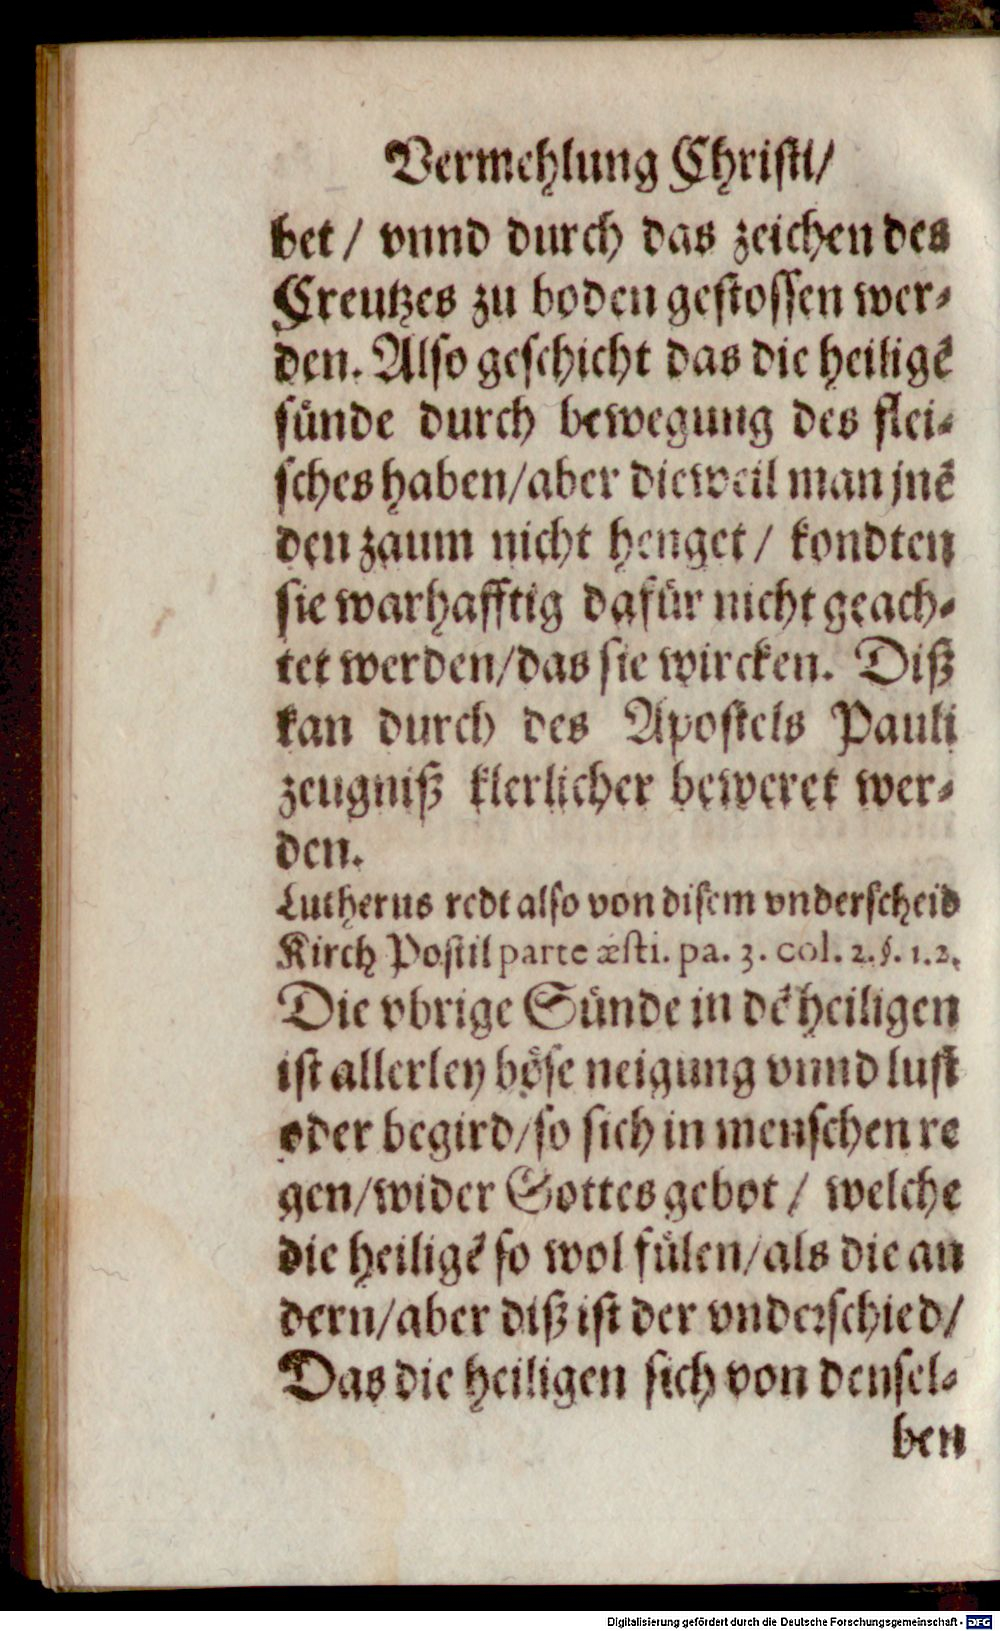 Vermehlung Christi/
bet / vnnd durch das zeichen des
Creutzes zu boden gestossen wer-
den. Also geschicht das die heiligẽ
sünde durch bewegung des flei-
sches haben/aber dieweil man jnẽ
den zaum nicht henget / kondten
sie warhafftig dafür nicht geach-
tet werden/das sie wircken. Diß
kan durch des Apostels Pauli
zeugniß klerlicher beweret wer-
den.
Lutherus redt also von disem vnderscheid
Kirch Postil parte æsti. pa. 3. col. 2. §. 1.2.
Die vbrige Sünde in dẽ heiligen
ist allerley böse neigung vnnd lust
oder begird/so sich in menschen re
gen/wider Gottes gebot / welche
die heiligẽ so wol fülen/als die an
dern/aber diß ist der vnderschied/
Das die heiligen sich von densel-
ben
Digitalisierung gefördert durch die Deutsche Forschungsgemeinschaft - DFG